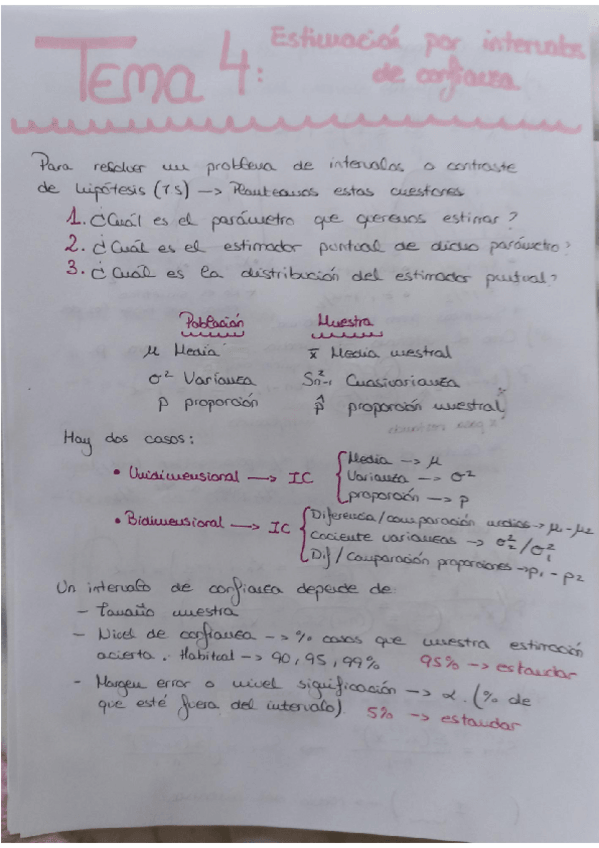 Tema 4: Estimación por intervalos
de confianza
Para resolver un problema de intervalos o contraste
de hipótesis (TS) → Planteamos estas cuestiones
1. ¿Cuál es el parámetro que queremos estimar?
2. ¿Cuál es el estimador puntual de dicho parámetro?
3. ¿Cuál es la distribución del estimador puntual?
Población Muestra
μ Media x̄ Media muestral
σ² Varianza S²n-1 Cuasivarianza
p proporción p̂ proporción muestral
Hay dos casos:
• Unidimensional → IC { Media → μ
Varianza → σ²
proporción → p
• Bidimensional → IC { Diferencia/comparación medias → μ₁ - μ₂
Cociente varianzas → σ²₂/σ²₁
Dif/Comparación proporciones → p₁ - p₂
Un intervalo de confianza depende de:
- Tamaño muestra
- Nivel de confianza → % casos que nuestra estimación
acierta. Habitual → 90, 95, 99% 95% → estandar
- Margen error o nivel significación → α. (% de
que esté fuera del intervalo). 5% → estandar